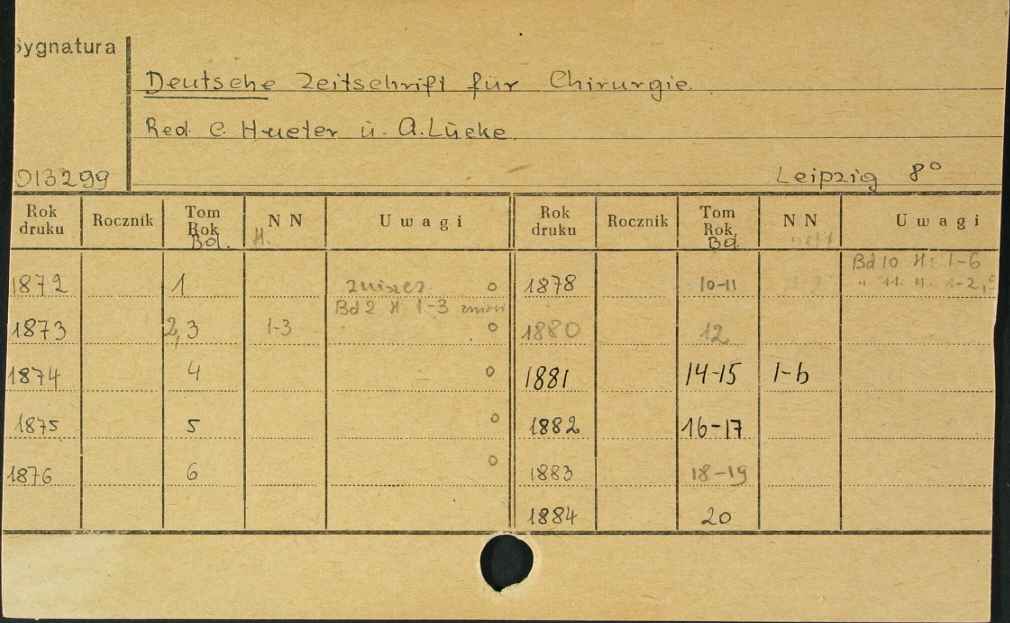 Sygnatura
Deutsche Zeitschrift für Chirurgie.
Red. C. Hueter u. A. Lücke
013299
Leipzig 8°
Rok druku Rocznik Tom Rok Bd. N N H. Uwagi Rok druku Rocznik Tom Rok Bd. N N Uwagi
Bd 10 H: 1-6
1872 1 o 1878 10-11 " 11. H. 1-2,
Bd 2 H 1-3
1873 2,3 1-3 o 1880 12
1874 4 o 1881 14-15 1-6
1875 5 o 1882 16-17
1876 6 o 1883 18-19
1884 20